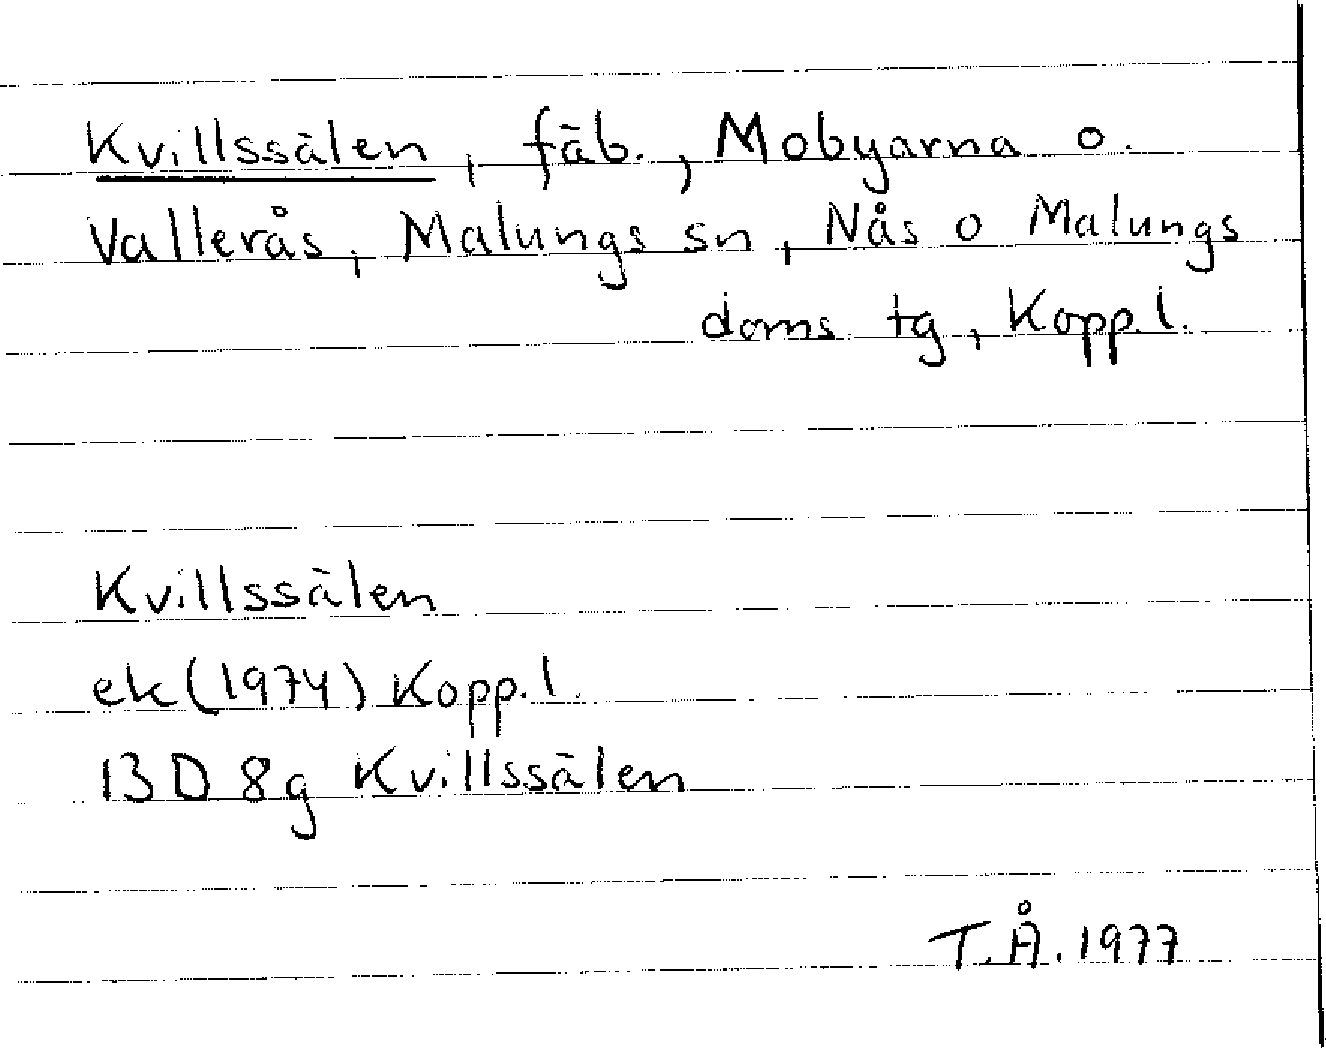 Kvillssälen, fäb., Mobyarna o.
Vallerås, Malungs sn, Nås o Malungs
doms. tg, Kopp.l.
Kvillssälen
ek(1974) Kopp.l.
13D 8g Kvillssälen
T.Å.1977